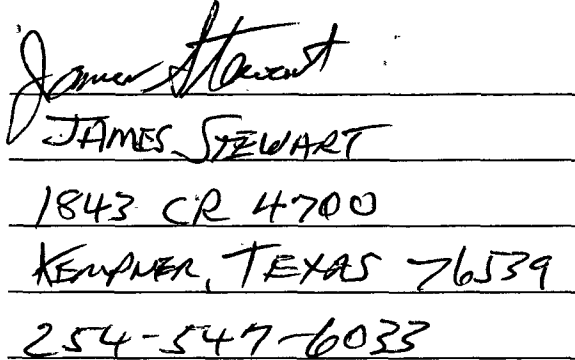 James Stewart
JAMES STEWART
1843 CR 4700
KEMPNER, TEXAS 76539
254-547-6033